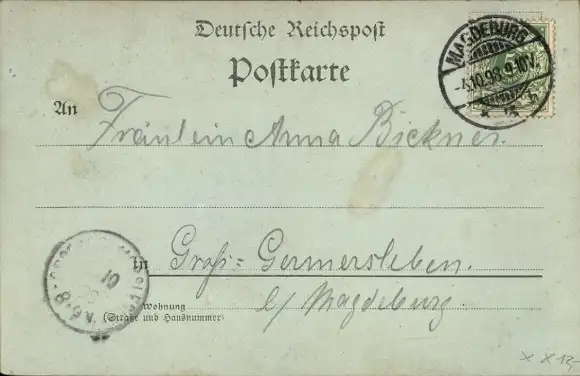 Deutsche Reichspost
Postkarte
MAGDEBURG
-4.10.98.9-10V.
An
Fräulein Anna Bickner.
in
Groß-Germersleben.
b/ Magdeburg.
Wohnung
(Straße und Hausnummer)
x x 12,-